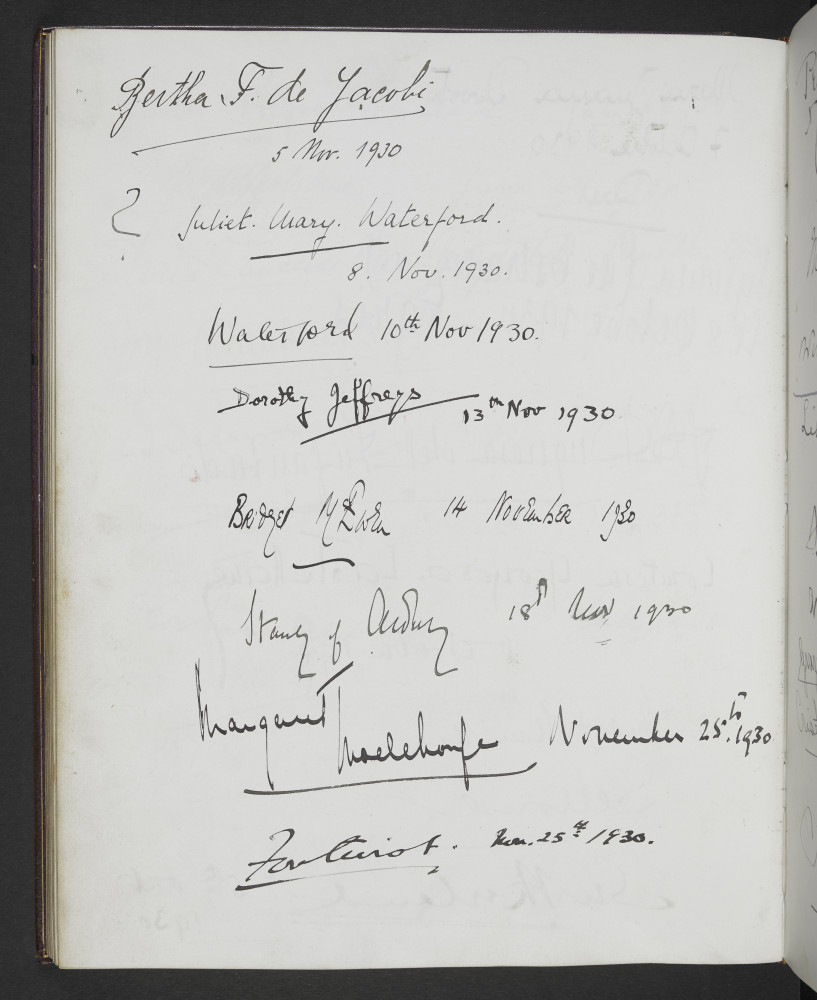 Bertha F. de Jacobi
5 Nov. 1930
?
Juliet. Mary. Waterford.
8. Nov. 1930.
Waterford 10th Nov 1930.
Dorothy Jeffreys 13th Nov 1930
Bridget McEwen 14 November 1930
Stanley of Alderley 18th Nov 1930
Margaret November 25th. 1930
Nov. 25th 1930.